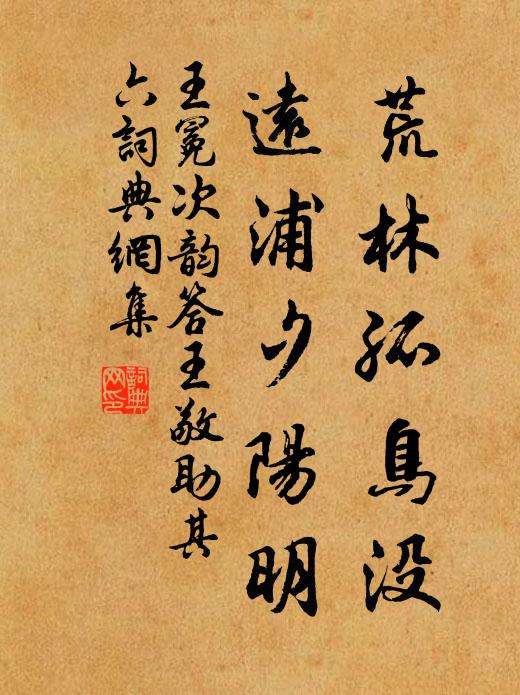 荒林孤鳥没
遠浦夕陽明
王冕次韵答王敬助其
六詞典網集
詞典
网印